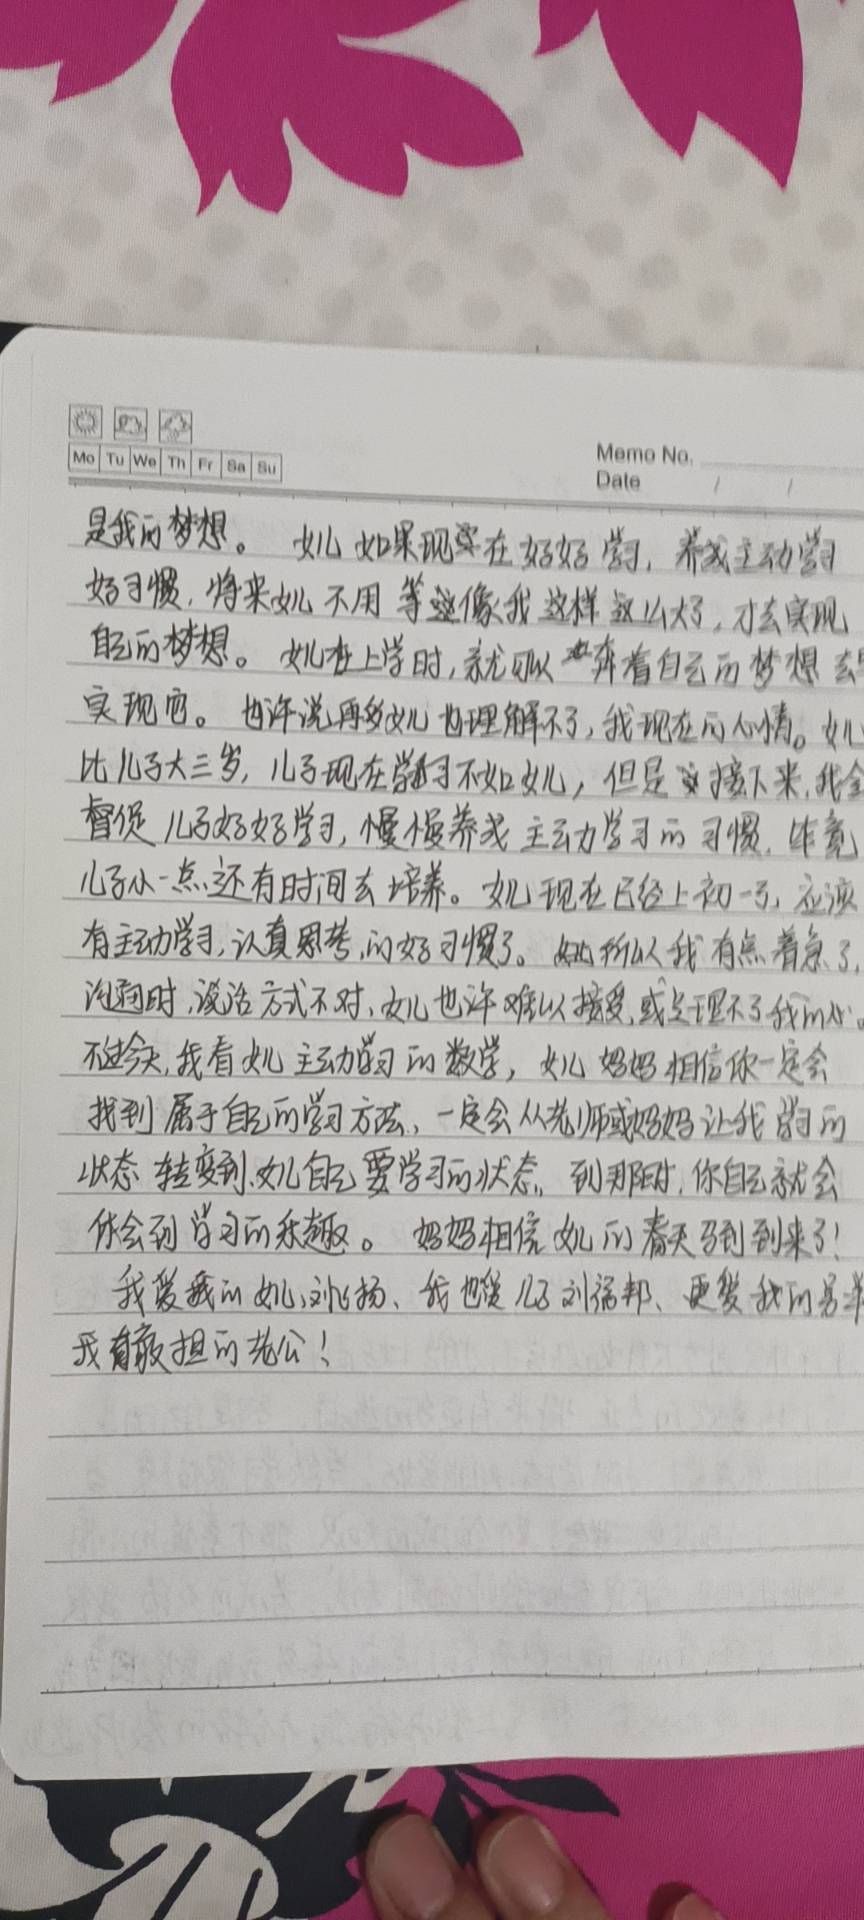 Mo Tu We Th Fr Sa Su
Memo No.
Date / /
是我的梦想。女儿如果现在好好学习，养成主动学习
好习惯，将来女儿不用等像我这样这么大了，才去实现
自己的梦想。女儿在上学时，就可以奔着自己的梦想去
实现它。也许说再多女儿也理解不了，我现在的心情。女儿
比儿子大三岁，儿子现在学习不如女儿，但是接下来，我会
督促儿子好好学习，慢慢养成主动学习的习惯，毕竟
儿子小一点，还有时间去培养。女儿现在已经上初一了，应该
有主动学习，认真思考，的好习惯了。所以我有点着急了，
沟通时，说话方式不对，女儿也许难以接受，或是理不了我的心。
不过今天，我看女儿主动学习的数学，女儿妈妈相信你一定会
找到属于自己的学习方法，一定会从老师或妈妈让我学习的
状态转变到，女儿自己要学习的状态，到那时，你自己就会
体会到学习的乐趣。妈妈相信女儿的春天马到到来了！
我爱我的女儿，刘扬、我也爱儿子刘福邦、更爱我的
有担的老公！